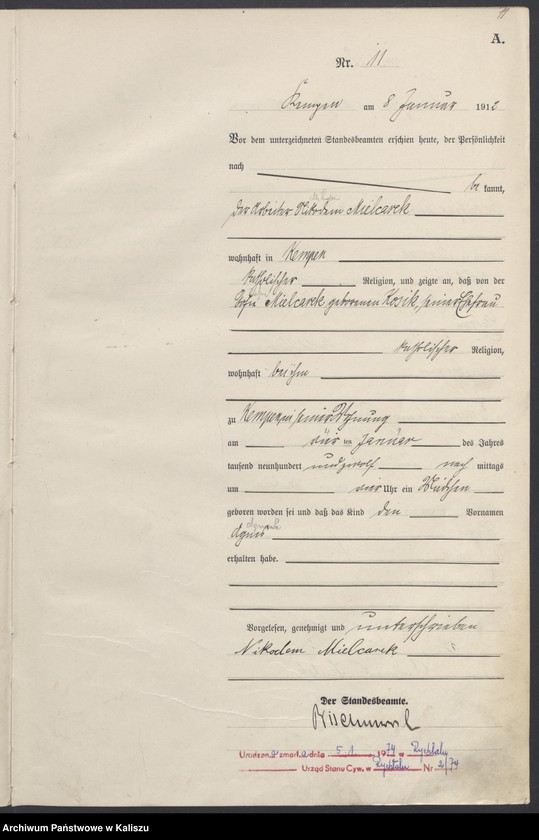 11
A.
Nr. 11
Kempen am 8 Januar 1912
Vor dem unterzeichneten Standesbeamten erschien heute, der Persönlichkeit
nach
be kannt,
der Arbeiter Nikodem Mielcarek
wohnhaft in Kempen
katholischer Religion, und zeigte an, daß von der
Mielcarek geborenen Kosik, seiner Ehefrau
katholischer Religion,
wohnhaft bei ihm
zu Kempen in seiner Wohnung
am ten Januar des Jahres
tausend neunhundert und zwölf nach mittags
um vier Uhr ein Mädchen
geboren worden sei und daß das Kind den Vornamen
Agnes
erhalten habe.
Vorgelesen, genehmigt und unterschrieben
Nikodem Mielcarek
Der Standesbeamte.
Urodzon a zmarł a dnia 5 1 1974 w Rychtalu
Urząd Stanu Cyw. w Rychtalu Nr 2/74
Archiwum Państwowe w Kaliszu